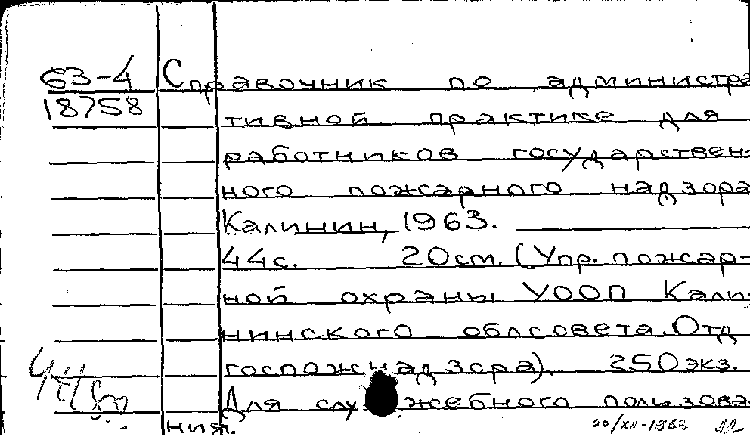 63-4 Справочник по администра-
18758 тивной практике для
работников государствен-
ного пожарного надзора
Калинин, 1963.
44с. 20см. (Упр. пожар-
ной охраны УООП Кали-
нинского облсовета. Отд
госпожнадзора). 250экз.
Для служебного пользова-
ния.
20/XII-1963